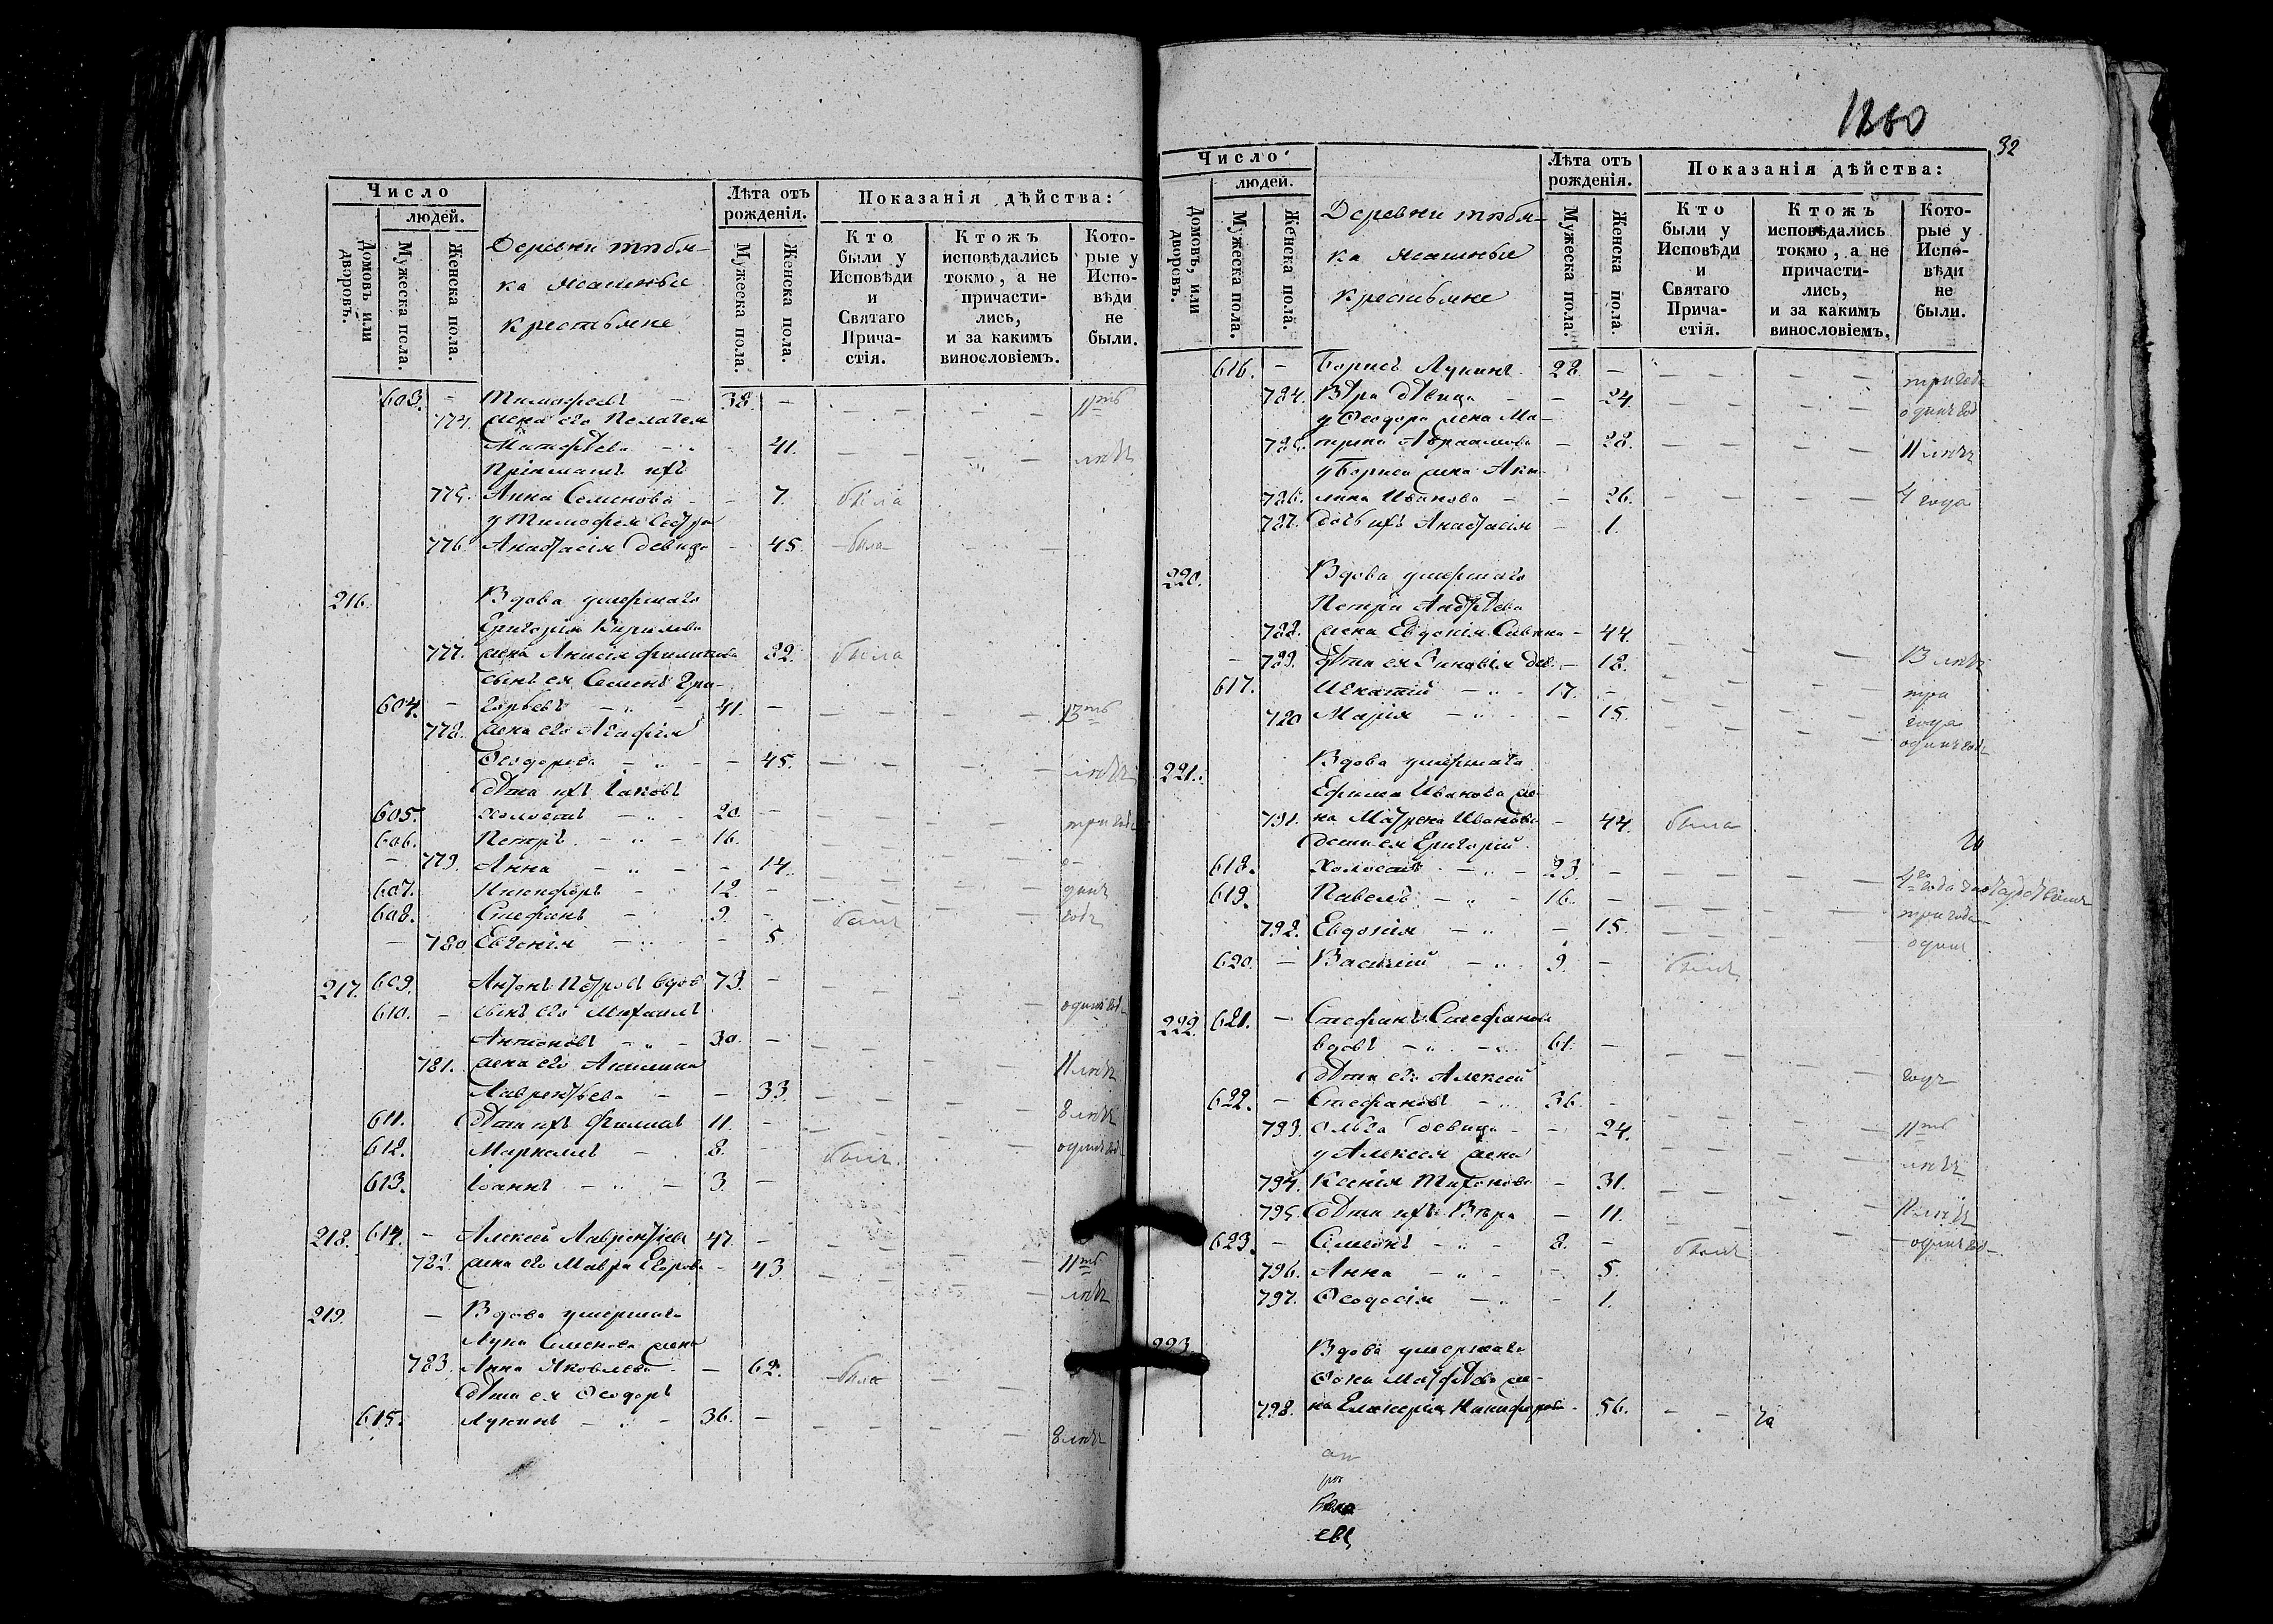 Число
людей.
Домовъ или дворовъ.
Мужеска пола.
Женска пола.
Деревни
ка Ясашные
крестьяне
Лѣта отъ рожденія.
Мужеска пола.
Женска пола.
Показанія дѣйства:
Кто были у Исповѣди и Святаго Прича- стія.
Ктожъ исповѣдались токмо, а не причасти- лись, и за какимъ винословіемъ.
Кото- рые у Испо- вѣди не были.
603. - Тимофеевъ 38. - 11ть
774. жена его Пелагея
Матфѣева - 41. лѣтъ
Пріемышъ ихъ
775. Анна Семенова - 7. была
у Тимофея сестра
776. Анастасія девица 45. была
216. Вдова умершаго
Григорія Кирилова
777. жена Анисія Филипова 82. была
сынъ ея Семенъ Гри-
604. - горьевъ 41. - 13ть
778. жена его Агафія
Ѳеодорова - 45. лѣтъ
Дѣти ихъ Іаковъ
605. холостъ 20. - три года
606. Петръ 16.
779. Анна - 14. о-
607. Никифоръ 12. - динъ
608. Стефанъ 9. - былъ годъ
780 Евгенія - 5.
217. 609. Антонъ Петровъ вдов 73. -
610. - сынъ его Михаилъ одинъ годъ
Антоновъ 30. -
781. жена его Акилина 11 лѣтъ
Лаврентьева - 33.
611. Дѣти ихъ Филипъ 11. - 8 лѣтъ
612. Маркеллъ 8. - былъ одинъ годъ
613. Іоаннъ 3. -
218. 614. - Алексей Лаврентьевъ 47. -
782. жена его Мавра Егорова - 43. 11ть
лѣтъ
219. - Вдова умершаго
Луки Семенова жена
783. Анна Яковлева - 62. была
Дѣти ея Ѳеодоръ
615. Лукинъ 36. -
8 лѣтъ
1260
32
Число
людей.
Домовъ, или дворовъ.
Мужеска пола.
Женска пола.
Деревни
ка Ясашные
крестьяне
Лѣта отъ рожденія.
Мужеска пола.
Женска пола.
Показанія дѣйства:
Кто были у Исповѣди и Святаго Прича- стія.
Ктожъ исповѣдались токмо, а не причасти- лись, и за какимъ винословіемъ.
Кото- рые у Испо- вѣди не были.
616. - Борисъ Лукинъ 28. - три года
784. Вѣра дѣвица - 24. одинъ годъ
у Ѳеодора жена Ма-
785. трина Авраамова - 28. 11 лѣтъ
у Бориса жена Аки-
786. лина Иванова - 26. 4 года
787. Дочь ихъ Анастасія - 1.
220. Вдова умершаго
Петра Андрѣева
788. жена Евдокія Савина - 44.
- 789. Дѣти ея Зиновія дев. - 18. 13 лѣтъ
617. Игнатій 17. - три
720 Марія - 15. года
одинъ годъ
221. Вдова умершаго
Ефима Иванова же-
791. на Матрена Иванова - 44. была
Дети ея Григорій
618. холостъ 23. -
619. Павелъ 16. -
792. Евдокія - 15. три года
620. - Василій 9. - былъ одинъ
222. 621. - Стефанъ Стефановъ
вдовъ 61. -
Дѣти его Алексей годъ
622. - Стефановъ 36. -
793. Ольга девица - 24. 11ть
у Алексея жена лѣтъ
794. Ксенія Тихонова - 31.
795. Дѣти ихъ Вѣра - 11. 11 лѣтъ
623. - Симеонъ 8. - былъ одинъ годъ
796. Анна - 5.
797. Ѳеодосія - 1.
223. Вдова умершаго
Ѳока Матфѣева же-
798. на Гликерія Никифорова 56.